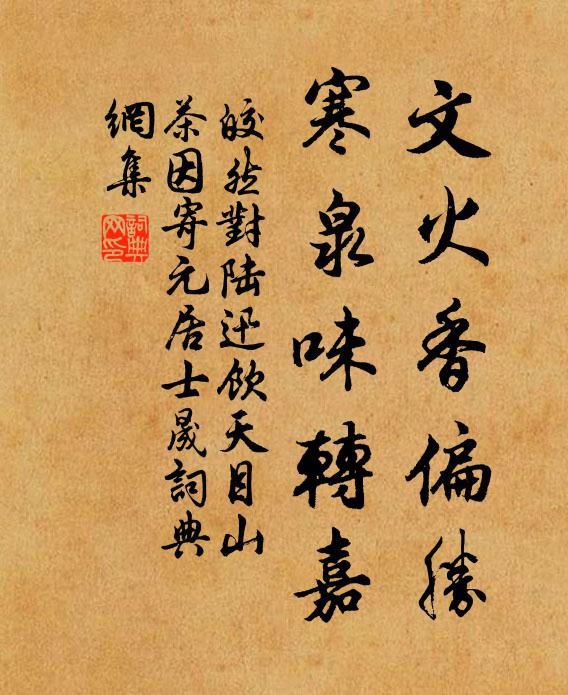 文火香偏勝
寒泉味轉嘉
皎然對陆迅飲天目山
茶因寄元居士晟詞典
網集
詞典網印